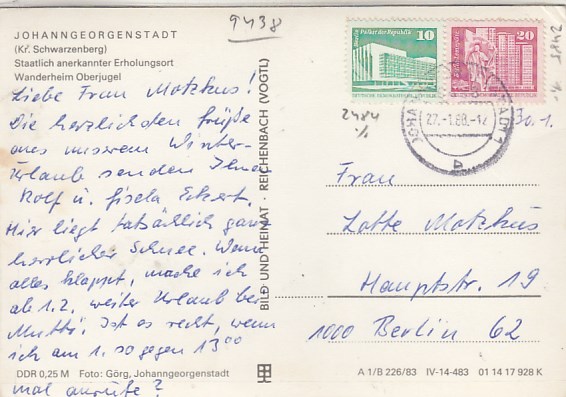 9438
JOHANNGEORGENSTADT
(Kr. Schwarzenberg)
Staatlich anerkannter Erholungsort
Wanderheim Oberjugel
Liebe Frau Motzkus!
Die herzlichsten Grüße
aus unserem Winter-
urlaub senden Ihnen
Rolf u. Gisela Eckert.
Hier liegt tatsächlich ganz
herrlicher Schnee. Wenn
alles klappt, mache ich
ab 1.2. weiter Urlaub bei
Mutti. Ist es recht, wenn
ich am 1. so gegen 13⁰⁰
mal anrufe?
DDR 0,25 M Foto: Görg, Johanngeorgenstadt
BILD UND HEIMAT · REICHENBACH (VOGTL)
Palast der Republik
10
DEUTSCHE DEMOKRATISCHE REPUBLIK
20
27.-1.88.-12
2484
2485
30.1.
Frau
Lotte Motzkus
Hauptstr. 19
1000 Berlin 62
A 1/B 226/83 IV-14-483 01 14 17 928 K